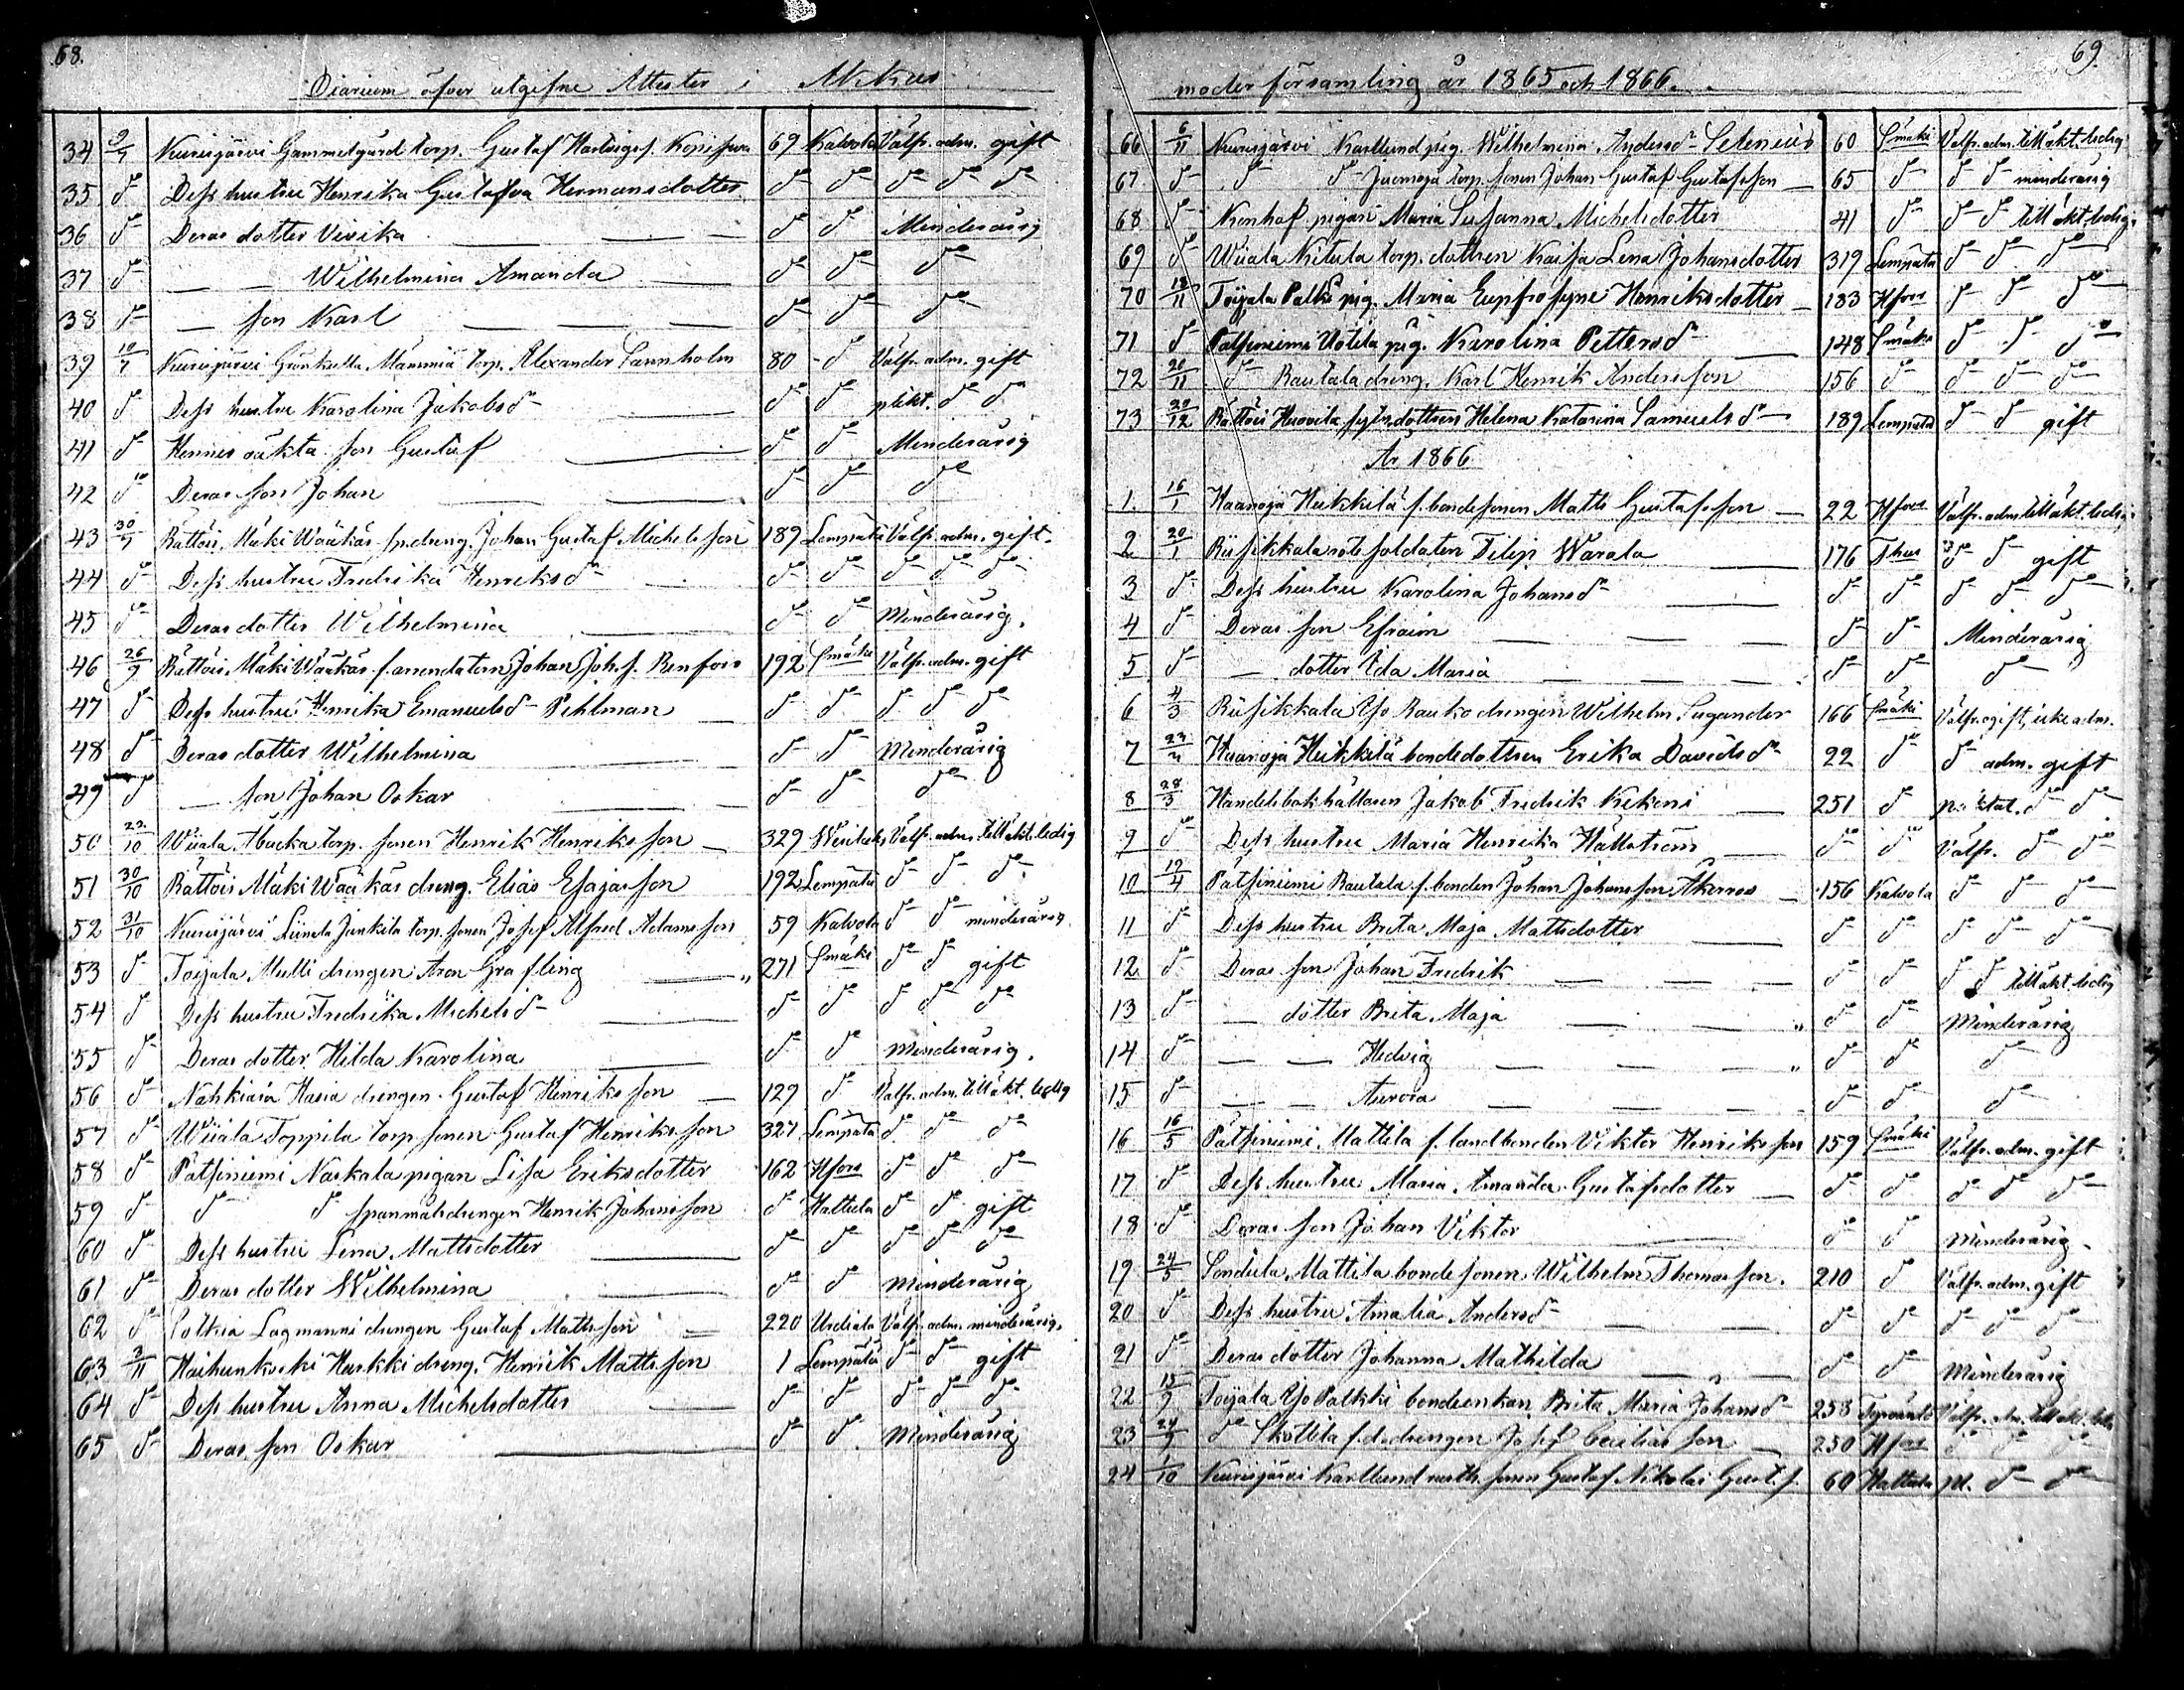 68.
Diarium öfver utgifne Attester i Akkas
34 9/7 Kurisjärvi Gammelgård torp. Gustaf Hartvigs f. 69 Kalvola Välfr. adm. gift
35 d:o Dess hustru Henrika Gustafva Hermansdotter d:o d:o d:o d:o d:o
36 d:o Deras dotter Vivika d:o d:o Minderårig
37 d:o — — Wilhelmina Amanda d:o d:o d:o
38 d:o — son Karl d:o d:o d:o
39 10/7 Kurisjärvi Grönkulla Mämmiä torp. Alexander Sannholm 80 d:o Välfr. adm. gift
40 d:o Dess hustru Karolina Jakobsd:r d:o d:o plikt. d:o d:o
41 d:o Hennes oäkta son Gustaf d:o d:o Minderårig
42 d:o Deras son Johan d:o d:o d:o
43 30/7 Rättöis Mäki Wääkäs dreng. Johan Gustaf Michelsson 189 Lempälä Välfr. adm. gift.
44 d:o Dess hustru Fredrika Henriksd:r d:o d:o d:o d:o d:o
45 d:o Deras dotter Wilhelmina d:o d:o Minderårig.
46 26/9 Rättöis Mäki Wääkäs f. arrendatorn Johan Joh. f. Renfors 192 Smäki Välfr. adm. gift
47 d:o Dess hustru Henrika Emanuelsd:r Pehlman d:o d:o d:o d:o d:o
48 d:o Deras dotter Wilhelmina d:o d:o Minderårig
49 d:o — son Johan Oskar d:o d:o d:o
50 22/10 Wiiala torp. sonen Henrik Henriksson 329 Välfr. adm. till äkt. ledig
51 30/10 Rättöis Mäki Wääkäs dreng. Elias Esajasson 192 Lempälä d:o d:o d:o
52 31/10 Kurisjärvi Junkila torp. sonen Josef Alfred Adamsson 59 Kalvola d:o d:o minderårig
53 d:o Toijala Mulli drengen Aron Grafling 271 Smäki d:o d:o gift
54 d:o Dess hustru Fredrika Michelsd:r d:o d:o d:o d:o d:o
55 d:o Deras dotter Hilda Karolina d:o d:o Minderårig.
56 d:o Nahkiala Hasia drengen Gustaf Henriksson 129 d:o Välfr. adm. till äkt. ledig
57 d:o Wiiala Toppila torp. sonen Gustaf Henriksson 327 Lempälä d:o d:o d:o
58 d:o Patsiniemi Naskala pigan Lisa Eriksdotter 162 Hfors d:o d:o d:o
59 d:o d:o d:o spanmålsdrengen Henrik Johansson d:o Hattula d:o d:o gift
60 d:o Dess hustru Lena Mattsdotter d:o d:o d:o d:o d:o
61 d:o Deras dotter Wilhelmina d:o d:o Minderårig
62 d:o Lagmanni drengen Gustaf Mattsson 220 Urdiala Välfr. adm. minderårig.
63 3/11 Haihunkoski Heikki dreng. Henrik Mattsson 1 Lempälä d:o d:o gift
64 d:o Dess hustru Anna Michelsdotter d:o d:o d:o d:o d:o
65 d:o Deras son Oskar d:o d:o Minderårig
69
moderförsamling år 1865 och 1866.
66 6/11 Kurisjärvi Karllund pig. Wilhelmina Andersd:r Selenius 60 Smäki Välfr. adm. till äkt. ledig
67 d:o d:o d:o torp. sonen Johan Gustaf Gustafsson 65 d:o d:o d:o minderårig
68 d:o Konhof pigan Maria Susanna Michelsdotter 41 d:o d:o d:o till äkt. ledig.
69 d:o Wiiala Kitula torp. dottren Kajsa Lena Johansdotter 319 Lempälä d:o d:o d:o
70 12/11 Toijala Palki pig. Maria Eupfrosyne Henriksdotter 183 Hfors d:o d:o d:o
71 d:o Patsiniemi Uotila pig. Karolina Pettersd:r 148 Smäki d:o d:o d:o
72 20/11 d:o Rautala dreng. Karl Henrik Andersson 156 d:o d:o d:o d:o
73 29/12 Rättöis Huovila dottren Helena Katarina Samuelsd:r 189 Lempälä d:o d:o gift
År 1866
1. 16/1 Haanoja Heikkilä f. bondesonen Matts Gustafsson 22 Hfors Välfr. adm. till äkt. ledig
2 20/1 Riisikkala rote soldaten Filip Warala 176 Thus d:o d:o gift
3 d:o Dess hustru Karolina Johansd:r d:o d:o d:o d:o d:o
4 d:o Deras son Efraim d:o d:o Minderårig
5 d:o — dotter Ida Maria d:o d:o d:o
6 4/3 Riisikkala Yso Rauko drengen Wilhelm Lugander 166 Smäki Välfr. ogift, icke adm.
7 Haanoja Heikkilä bondedottren Erika Davidsd:r 22 d:o d:o adm. gift
8 28/3 Handelsbokhållaren Jakob Fredrik Kekoni 251 d:o d:o d:o
9 d:o Dess hustru Maria Henrika Hällström d:o d:o Välfr. d:o d:o
10 19/4 Patsiniemi Rautala f. bonden Johan Johansson Åkerros 156 Kalvola d:o d:o d:o
11 d:o Dess hustru Brita Maja Mattsdotter d:o d:o d:o d:o d:o
12 d:o Deras son Johan Fredrik d:o d:o d:o d:o till äkt. ledig
13 d:o — dotter Brita Maja d:o d:o Minderårig
14 d:o — — Hedvig d:o d:o d:o
15 d:o — — Aurora d:o d:o d:o
16 16/5 Patsiniemi Mattila f. landbonden Viktor Henriksson 159 Smäki Välfr. adm. gift
17 d:o Dess hustru Maria Amanda Gustafsdotter d:o d:o d:o d:o d:o
18 d:o Deras son Johan Viktor d:o d:o Minderårig
19 24/5 Sondula Mattila bondesonen Wilhelm Thomasson. 210 d:o Välfr. adm. gift
20 d:o Dess hustru Amalia Andersd:r d:o d:o d:o d:o d:o
21 d:o Deras dotter Johanna Mathilda d:o d:o Minderårig
22 15/9 Toijala Yso Palkki bondeenkan Brita Maria Johansd:r 258 Välfr. adm. till äkt. ledig
23 24/9 d:o Skottila f.d. drengen Josef 250 Hfors d:o d:o d:o
24 1/10 Kurisjärvi Karllund rusth. sonen Gustaf Nikolai Gust. f. 60 Hattula d:o d:o